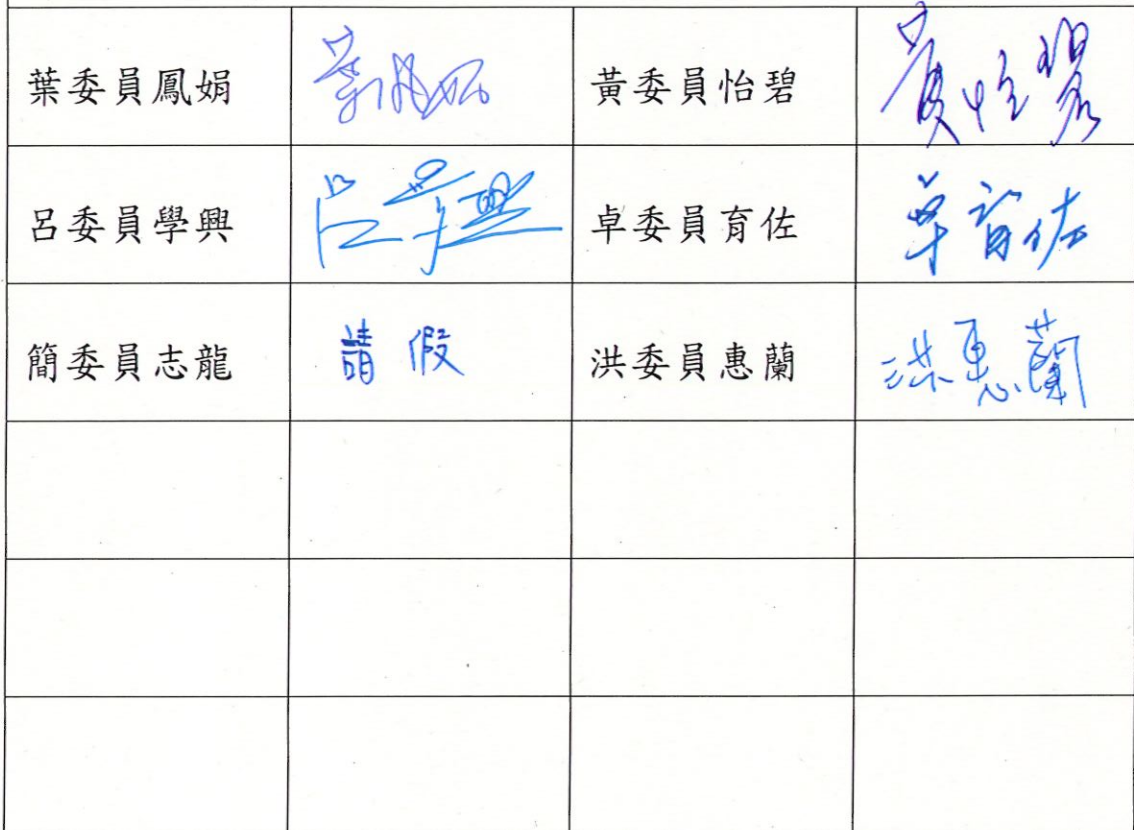 葉委員鳳娟 葉鳳娟 黃委員怡碧 黃怡碧
呂委員學興 呂學興 卓委員育佐 卓育佐
簡委員志龍 請假 洪委員惠蘭 洪惠蘭